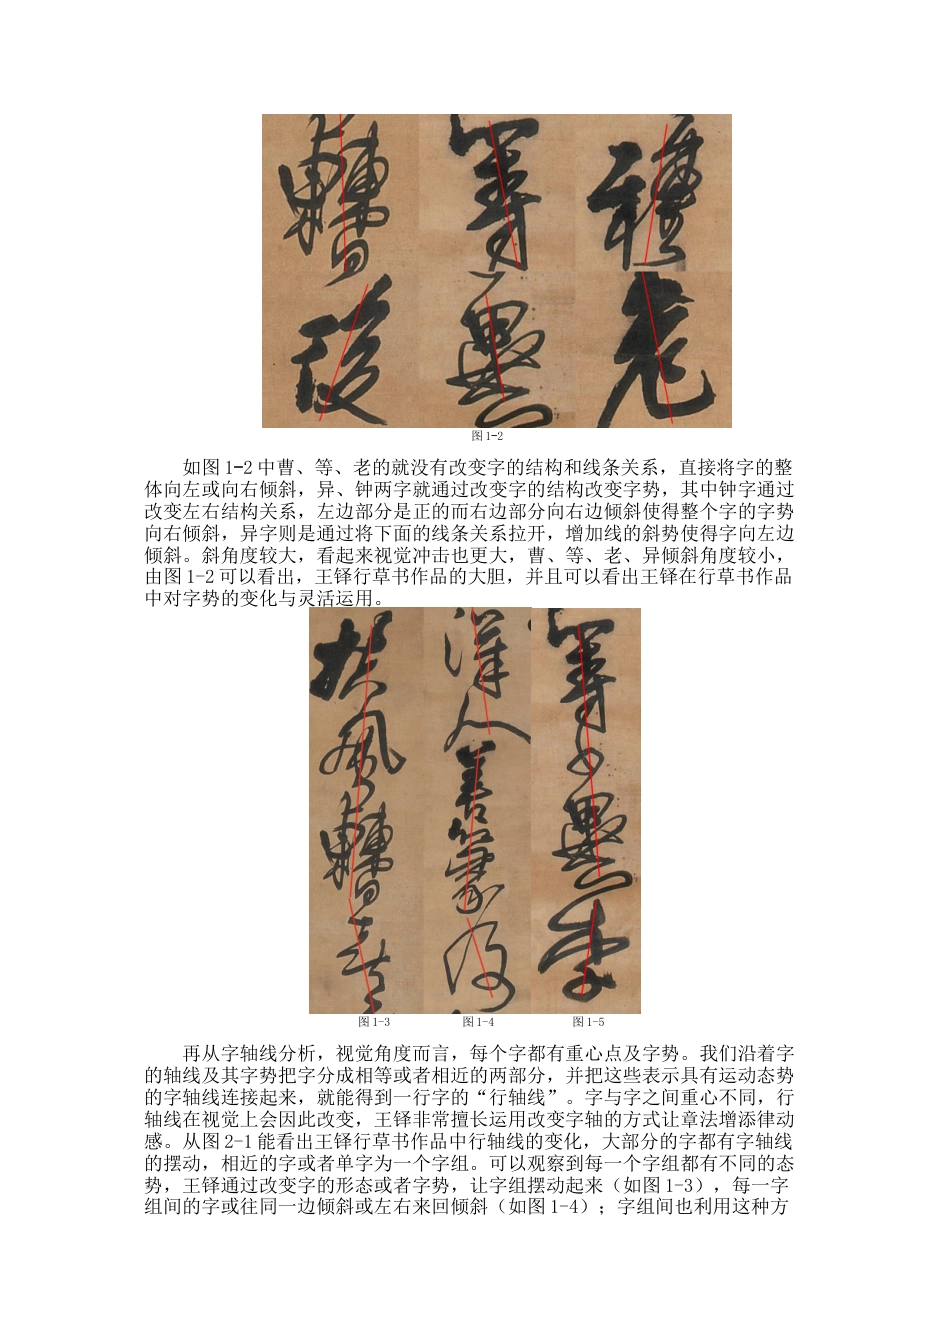 图 1-2
如图 1-2 中曹、等、老的就没有改变字的结构和线条关系，直接将字的整
体向左或向右倾斜，异、钟两字就通过改变字的结构改变字势，其中钟字通过
改变左右结构关系，左边部分是正的而右边部分向右边倾斜使得整个字的字势
向右倾斜，异字则是通过将下面的线条关系拉开，增加线的斜势使得字向左边
倾斜。斜角度较大，看起来视觉冲击也更大，曹、等、老、异倾斜角度较小，
由图 1-2 可以看出，王铎行草书作品的大胆，并且可以看出王铎在行草书作品
中对字势的变化与灵活运用。
图 1-3 图 1-4 图 1-5
再从字轴线分析，视觉角度而言，每个字都有重心点及字势。我们沿着字
的轴线及其字势把字分成相等或者相近的两部分，并把这些表示具有运动态势
的字轴线连接起来，就能得到一行字的“行轴线”。字与字之间重心不同，行
轴线在视觉上会因此改变，王铎非常擅长运用改变字轴的方式让章法增添律动
感。从图 2-1 能看出王铎行草书作品中行轴线的变化，大部分的字都有字轴线
的摆动，相近的字或者单字为一个字组。可以观察到每一个字组都有不同的态
势，王铎通过改变字的形态或者字势，让字组摆动起来（如图 1-3），每一字
组间的字或往同一边倾斜或左右来回倾斜（如图 1-4）；字组间也利用这种方